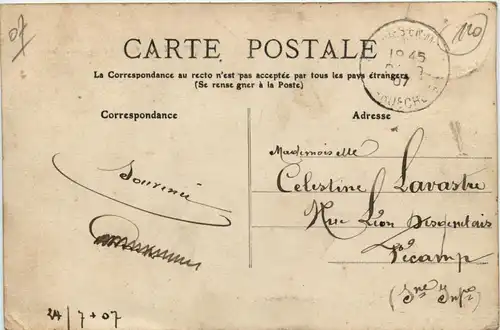 07
120
CARTE POSTALE
La Correspondance au recto n'est pas acceptée par tous les pays étrangers
(Se rense gner à la Poste)
1945
07
Correspondance
Adresse
Souvenir
Mademoiselle
Celestine Lavastre
Rue Léon Desgenetais
Fécamp
(Sne Infre)
24/7+07